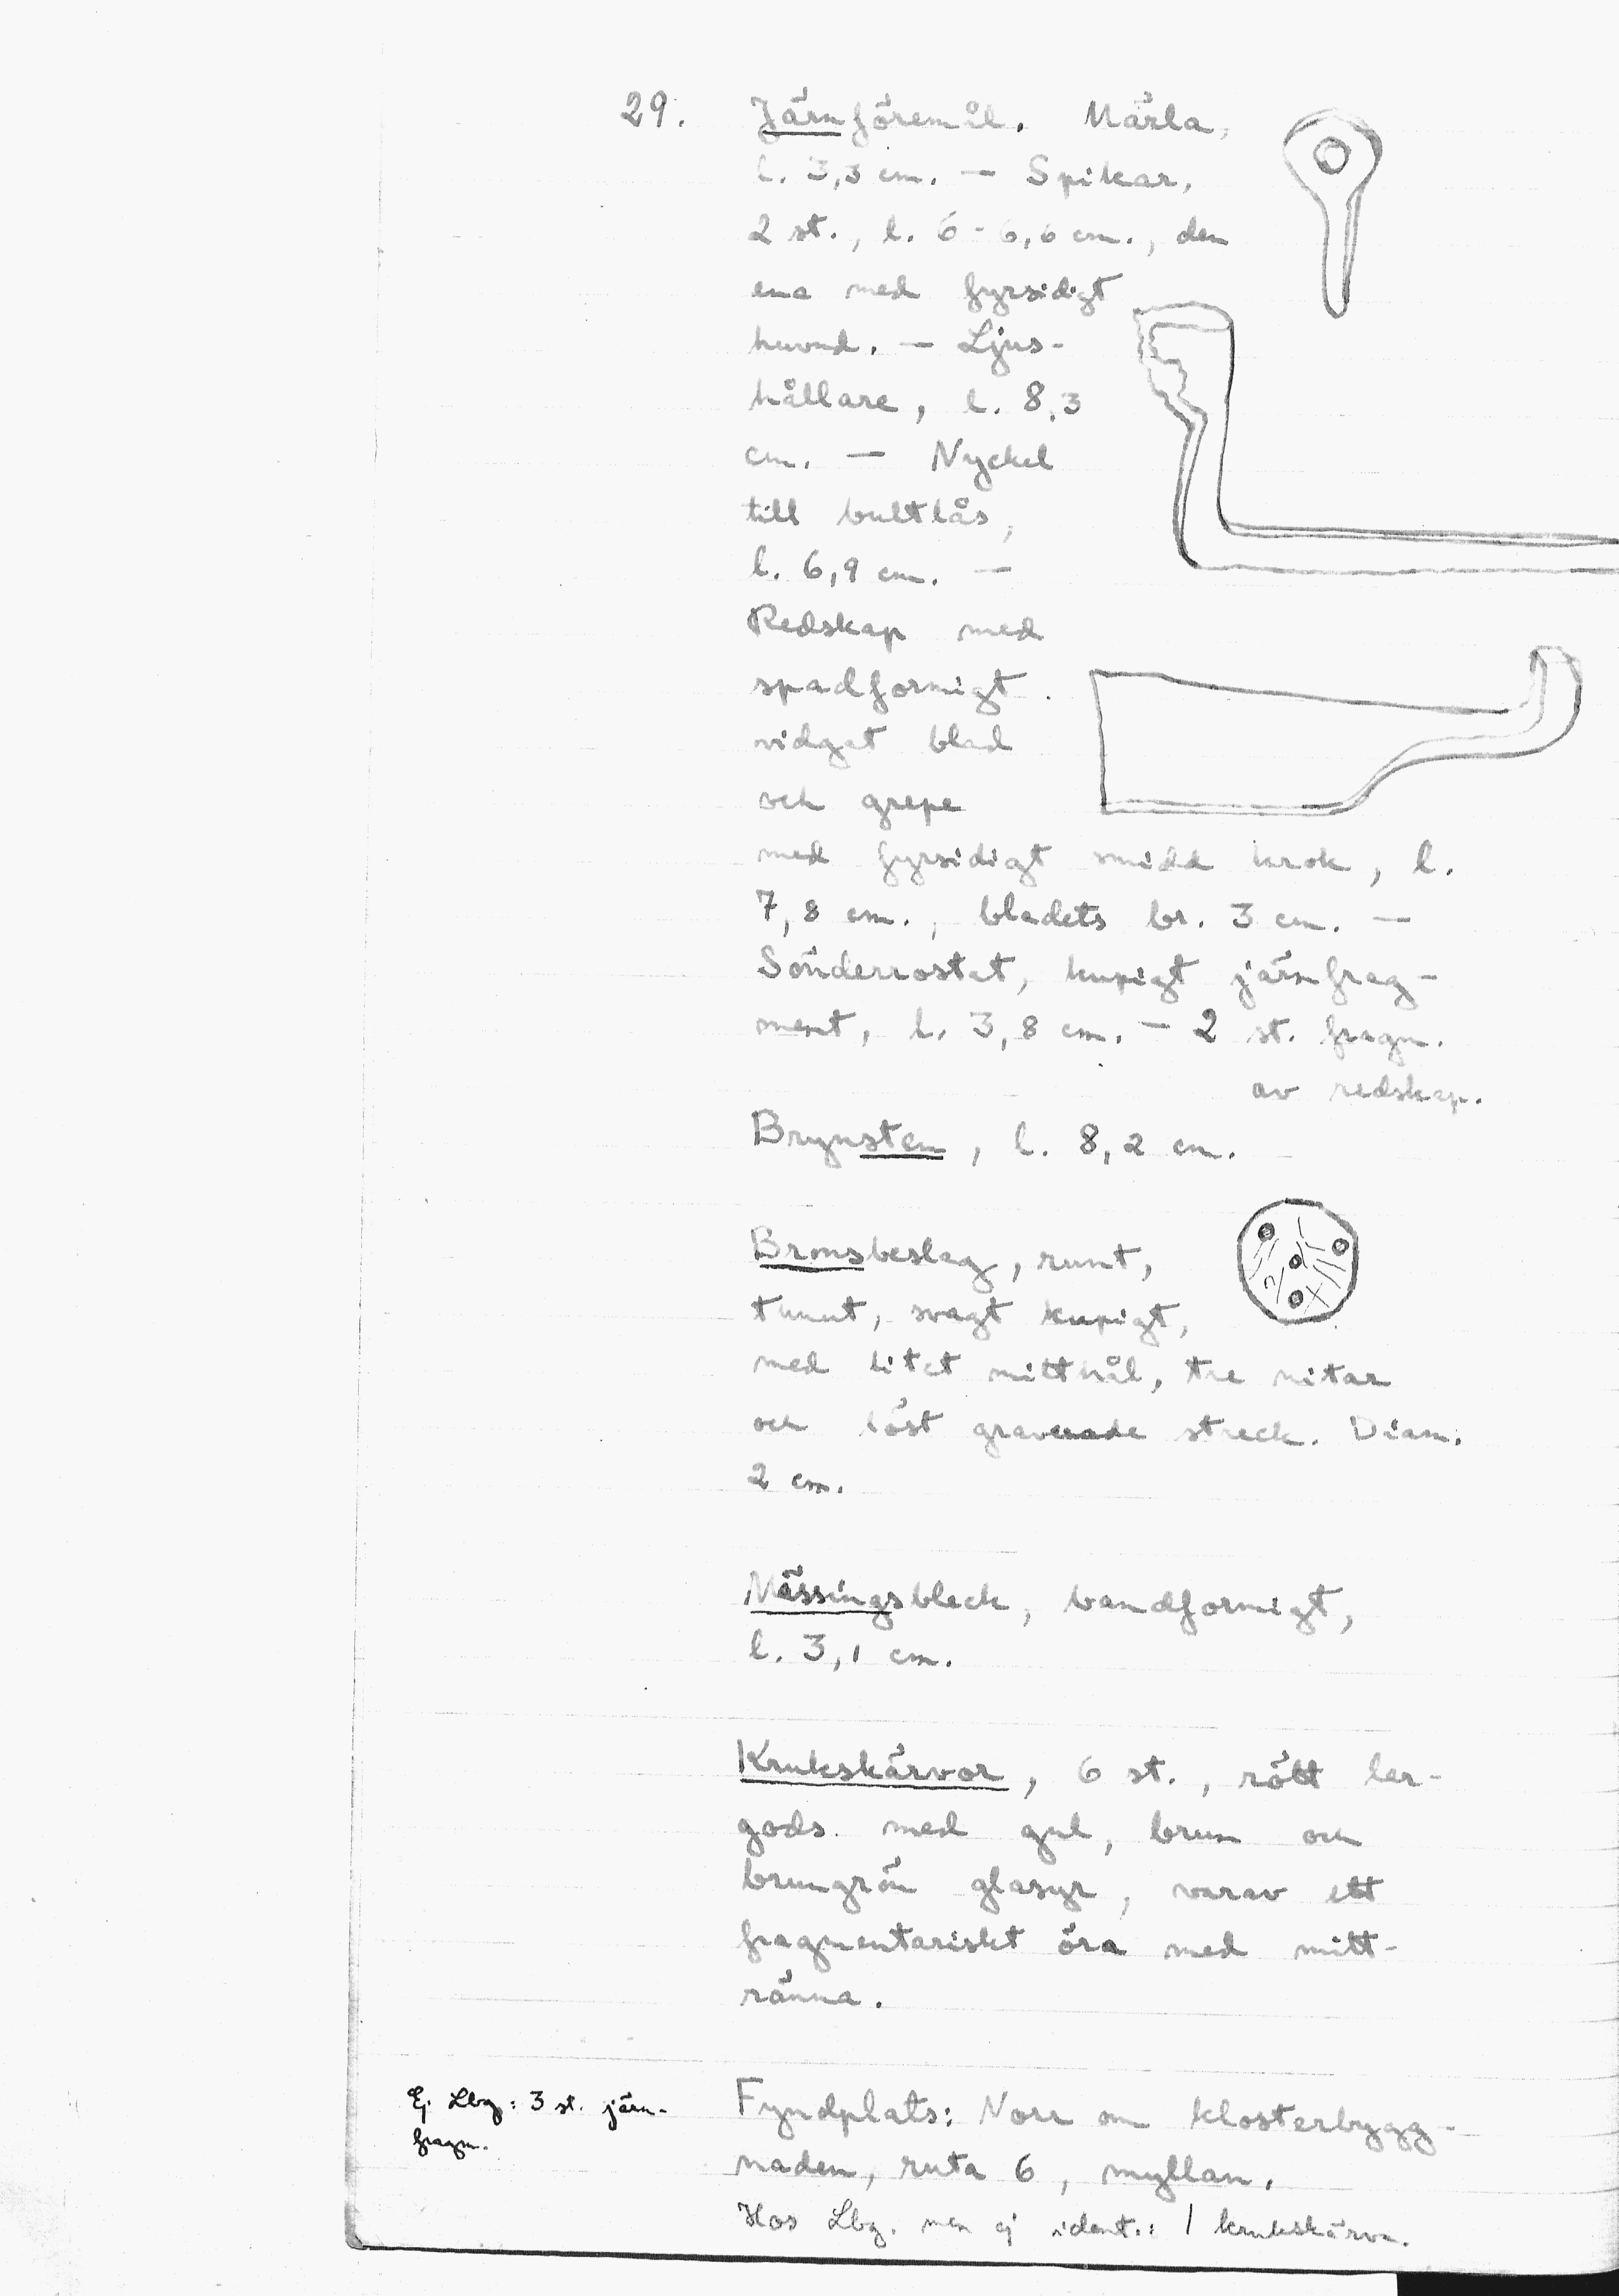 29. Järnföremål. Märla,
l. 3,3 cm. — Spikar,
2 st., l. 6 - 6,6 cm., den
ena med fyrsidigt
huvud. — Ljus-
hållare, l. 8,3
cm. — Nyckel
till bultlås,
l. 6,9 cm. —
Redskap med
spadformigt
vidgat blad
och grepe
med fyrsidigt smidd krok, l.
7,8 cm., bladets br. 3 cm. —
Sönderrostat, kupigt järnfrag-
ment, l. 3,8 cm. — 2 st. fragm.
av redskap.
Brynsten, l. 8,2 cm.
Bronsbeslag, runt,
tunnt, svagt kupigt,
med litet mitthål, tre nitar
och löst graverade streck. Diam.
2 cm.
Mässingsbleck, bandformigt,
l. 3,1 cm.
Krukskärvor, 6 st., rött ler-
gods med gul, brun och
brungrön glasyr, varav ett
fragmentariskt öra med mitt-
ränna.
Ej Lbg: 3 st. järn-
fragm.
Fyndplats: Norr om klosterbygg-
naden, ruta 6, myllan.
Hos Lbg. men ej ident.: 1 krukskärva.